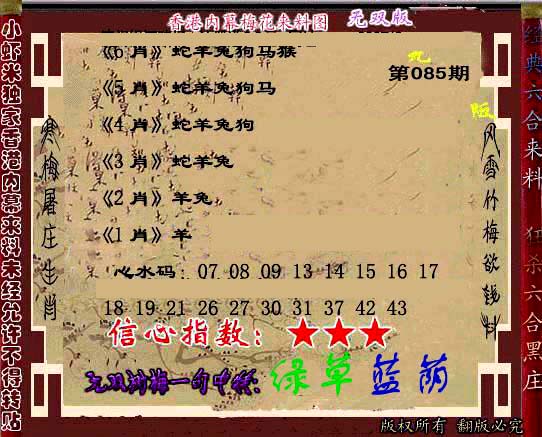 香港内幕梅花来料图 无双版
《6 肖》蛇羊兔狗马猴
九
第085期
《5 肖》蛇羊兔狗马
《4 肖》蛇羊兔狗
《3 肖》蛇羊兔
《2 肖》羊兔
《1 肖》羊
心水码：07 08 09 13 14 15 16 17
18 19 21 26 27 30 31 37 42 43
信心指数：★★★
无双浏梅一句中特：绿草蓝荫
版权所有 翻版必究
小虾米独家香港内幕来料未经允许不得转贴
寒梅屠庄生肖
风雪竹梅欲钱料
经典六合来料
狂杀六合黑庄